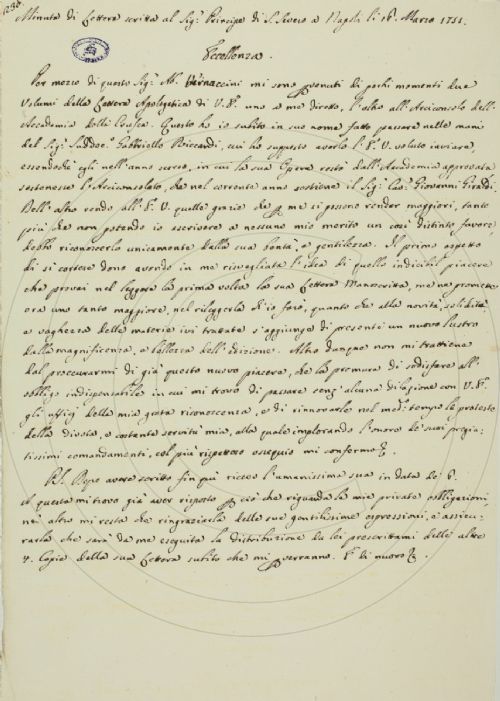 Minuta di Lettera scritta al Sig.r Principe di S. Severo a Napoli li 16. Marzo 1751.
Eccellenza.
Per mezzo di questo Sig.r Ab. Bernaccini mi son pervenuti da pochi momenti due
Volumi della Lettera Apologetica di V. E. uno a me diretto, l'altro all'Arciconsolo dell'
Accademia della Crusca. Questo ho io subito in suo nome fatto passare nelle mani
del Sig.r Suddec.o Gabriello Riccardi, cui ho supposto averlo l'E. V. voluto inviare,
essendochè egli nell'anno scorso, in cui la sua Opera restò dall'Accademia approvata
sostenesse l'Arciconsolato, che nel corrente anno sostiene il Sig.r Cav. Giovanni Giraldi.
Dell'altro rendo all'E. V. quelle grazie che per me si possono render maggiori, tanto
più che non potendo io ascrivere a nessuno mio merito un così distinto favore
debbo riconoscerlo unicamente dalla sua bontà, e gentilezza. Il primo aspetto
di sì cortese dono avendo in me risvegliata l'idea di quello indicibil piacere
che provai nel leggere la prima volta la sua Lettera Manoscritta, me ne promette
ora uno tanto maggiore, nel rileggerla ch'io farò, quanto che alla novità, solidità
e vaghezza delle materie ivi trattate s'aggiunge di presente un nuovo lustro
dalla magnificenza, e bellezza dell'edizione. Altro dunque non mi trattiene
dal procurarmi di già questo nuovo piacere, che la premura di sodisfare all'
obbligo indispensabile in cui mi trovo di passare senz'alcuna dilazione con V. E.
gli ufizj della mia grata riconoscenza, e di rinnovarle nel med.o tempo le proteste
della divota, e costante servitù mia, alla quale implorando l'onore de' suoi pregia-
tissimi comandamenti, col più rispettoso ossequio mi confermo
P.S. Dopo avere scritto fin qui ricevo l'umanissima sua in data de' 6.
A questa mi trovo già aver risposto per ciò che riguarda le mie private obbligazioni,
nè altro mi resta che ringraziarla delle sue gentilissime espressioni, e assicu-
rarla che sarà da me eseguita la distribuzione da lei prescrittami delle altre
4. Copie della sua Lettera subito che mi perverranno. E di nuovo